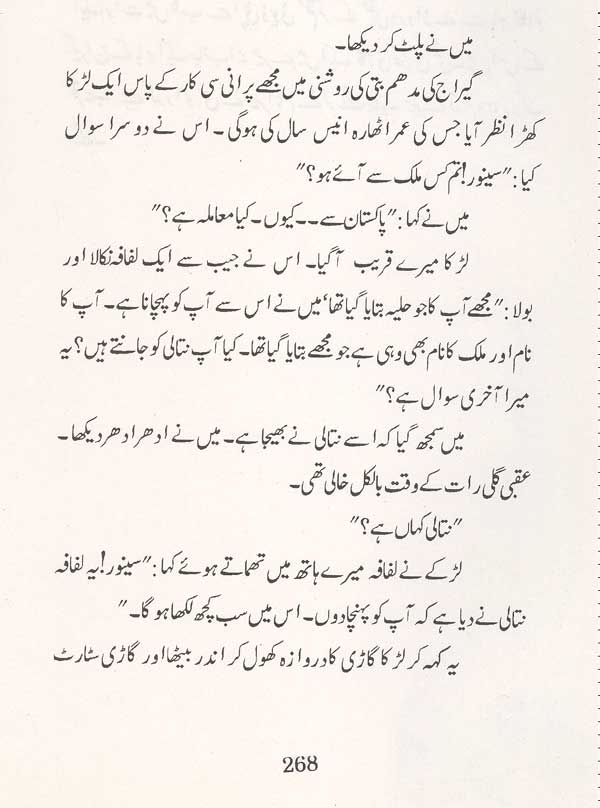 میں نے پلٹ کر دیکھا۔
گیراج کی مدھم بتی کی روشنی میں مجھے پرانی سی کار کے پاس ایک لڑکا
کھڑا نظر آیا جس کی عمر اٹھارہ انیس سال کی ہوگی۔ اس نے دوسرا سوال
کیا: "سینور! تم کس ملک سے آئے ہو؟"
میں نے کہا: "پاکستان سے۔۔ کیوں۔ کیا معاملہ ہے؟"
لڑکا میرے قریب آگیا۔ اس نے جیب سے ایک لفافہ نکالا اور
بولا: "مجھے آپ کا جو حلیہ بتایا گیا تھا‘ میں نے اس سے آپ کو پہچانا ہے۔ آپ کا
نام اور ملک کا نام بھی وہی ہے جو مجھے بتایا گیا تھا۔ کیا آپ نتالی کو جانتے ہیں؟ یہ
میرا آخری سوال ہے؟"
میں سمجھ گیا کہ اسے نتالی نے بھیجا ہے۔ میں نے ادھر ادھر دیکھا۔
عقبی گلی رات کے وقت بالکل خالی تھی۔
"نتالی کہاں ہے؟"
لڑکے نے لفافہ میرے ہاتھ میں تھماتے ہوئے کہا: "سینور! یہ لفافہ
نتالی نے دیا ہے کہ آپ کو پہنچا دوں۔ اس میں سب کچھ لکھا ہو گا۔"
یہ کہہ کر لڑکا گاڑی کا دروازہ کھول کر اندر بیٹھا اور گاڑی سٹارٹ
268